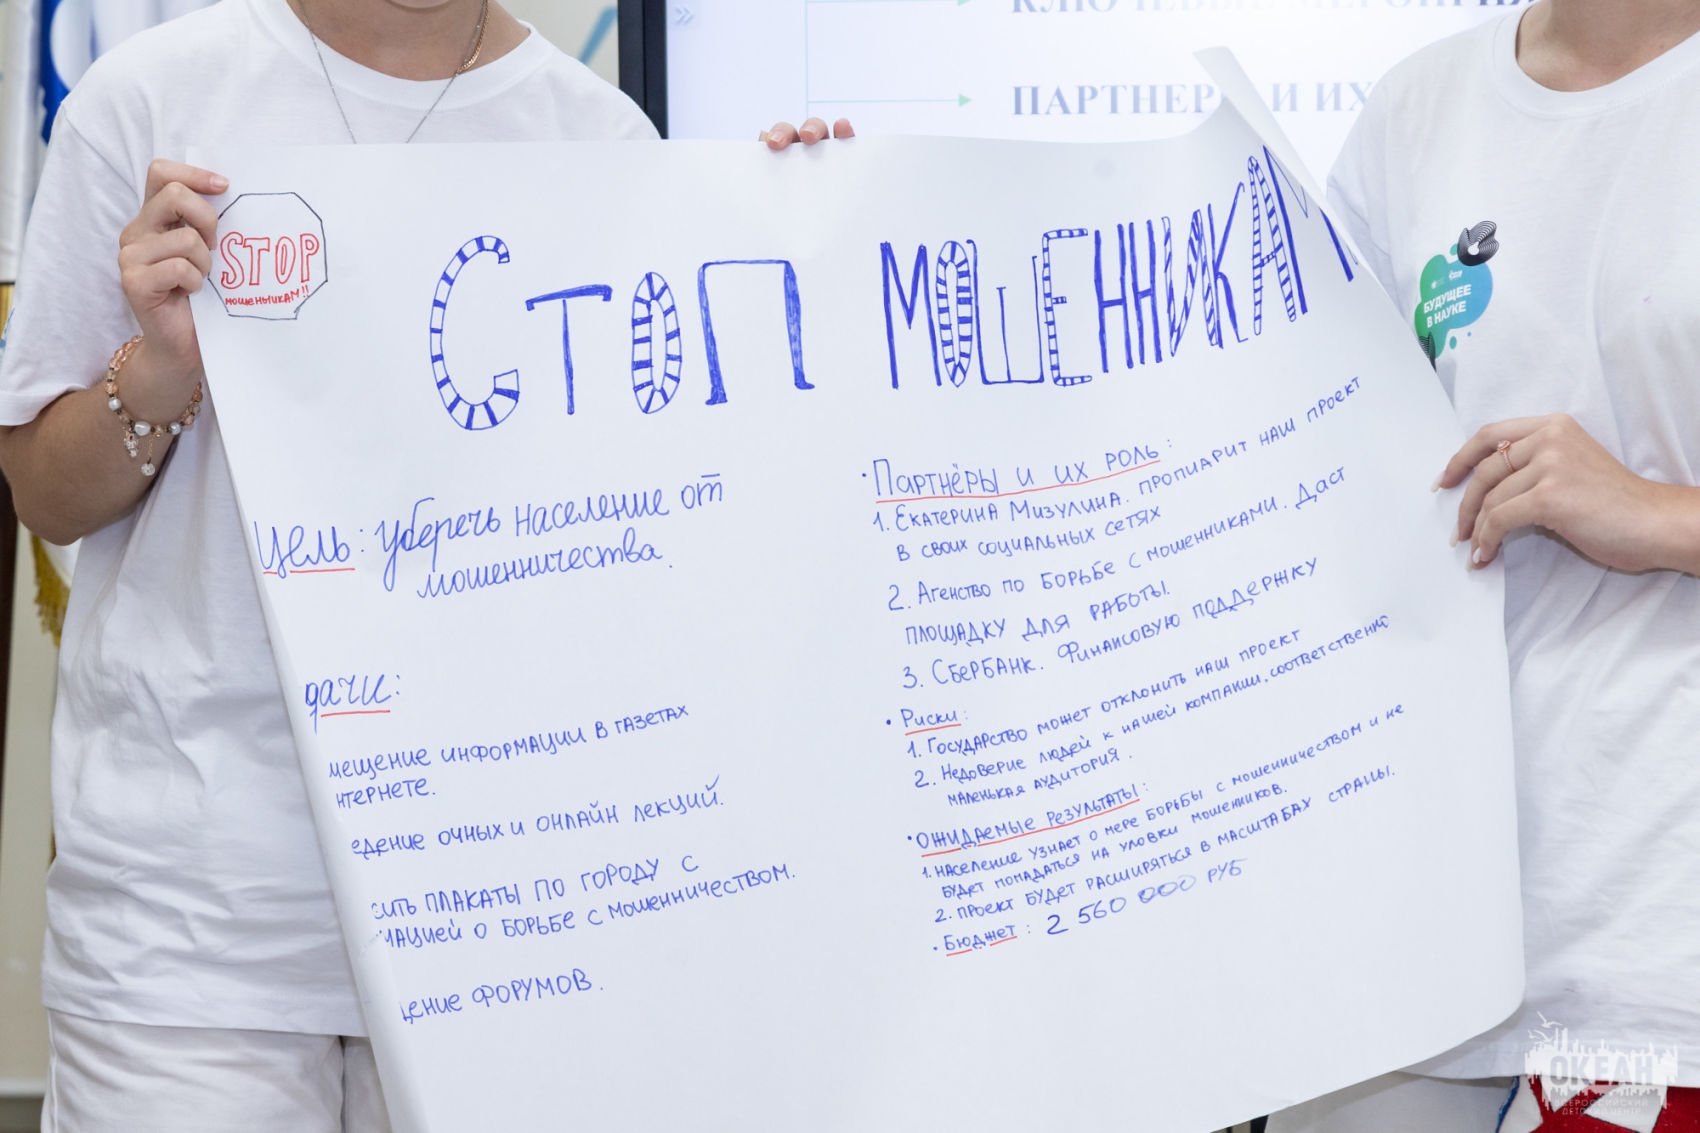 ПАРТНЕР И ИХ
STOP
мошенникам!!
Стоп мошенникам
Цель: уберечь население от
мошенничества.
дачи:
мещение информации в газетах
нтернете.
едение очных и онлайн лекций.
сить плакаты по городу с
мацией о борьбе с мошенничеством.
дение форумов.
· Партнёры и их роль:
1. Екатерина Мизулина. пропиарит наш проект
в своих социальных сетях
2. Агенство по борьбе с мошенниками. Даст
площадку для работы.
3. Сбербанк. Финансовую поддержку
· Риски:
1. Государство может отклонить наш проект
2. Недоверие людей к нашей компании, соответственно
маленькая аудитория.
· Ожидаемые результаты:
1. население узнает о мере борьбы с мошенничеством и не
будет попадаться на уловки мошенников.
2. проект будет расширяться в масштабах страны.
· Бюджет: 2 560 000 руб
БУДУЩЕЕ
В НАУКЕ
ОКЕАН
ВСЕРОССИЙСКИЙ
ДЕТСКИЙ ЦЕНТР